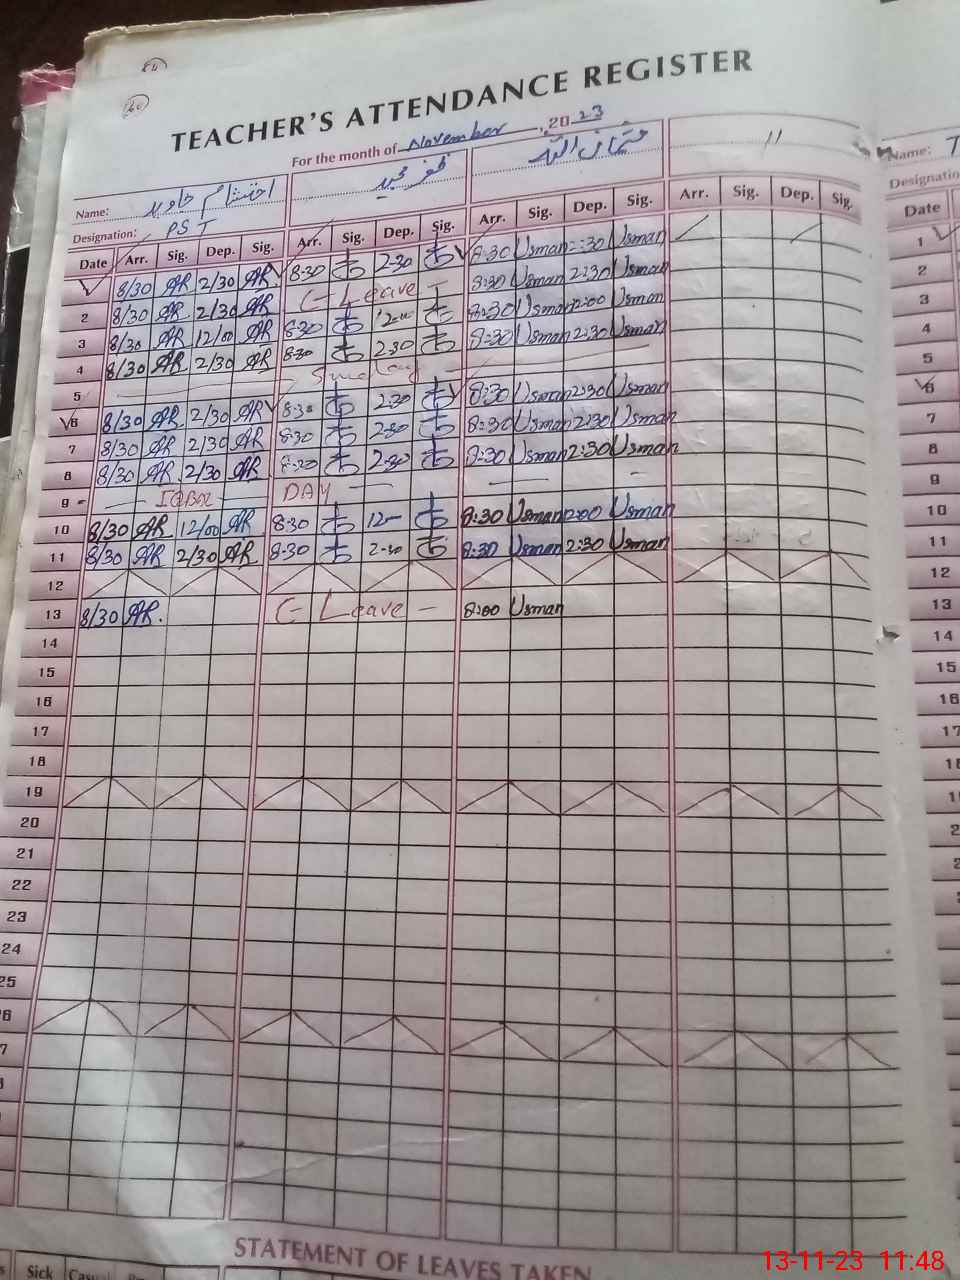 TEACHER'S ATTENDANCE REGISTER
For the month of November, 2023
Name: احتشام جاوید ظفر مجید عثمان اللہ 11 Name: T
Designation: PST Designatio
Date Arr. Sig. Dep. Sig. Arr. Sig. Dep. Sig. Arr. Sig. Dep. Sig. Arr. Sig. Dep. Sig. Date
8/30 AR 2/30 AR 8:30 2:30 8:30 Usman :30 Usman 1
2 8/30 AR 2/30 AR C-Leave 8:30 Usman 2:30 Usman 2
3 8/30 AR 12/00 AR 8:30 8:30 Usman :00 Usman 3
4 8/30 AR 2/30 AR 8:30 2:30 8:30 Usman 2:30 Usman 4
5 5
6 8/30 AR 2/30 AR 8:30 2:30 8:30 Usman 2:30 Usman 6
7 8/30 AR 2/30 AR 8:30 2:30 8:30 Usman 2:30 Usman 7
8 8/30 AR 2/30 AR 8:30 2:30 8:30 Usman 2:30 Usman 8
9 - IQBAL DAY - 9
10 8/30 AR 12/00 AR 8:30 12- 8:30 Usman :00 Usman 10
11 8/30 AR 2/30 AR 8:30 2:30 8:30 Usman 2:30 Usman 11
12 12
13 8/30 AR. C-Leave - 8:00 Usman 13
14 14
15 15
16 16
17 17
18
19
20
21
22
23
24
25
STATEMENT OF LEAVES TAKEN
Sick
13-11-23 11:48